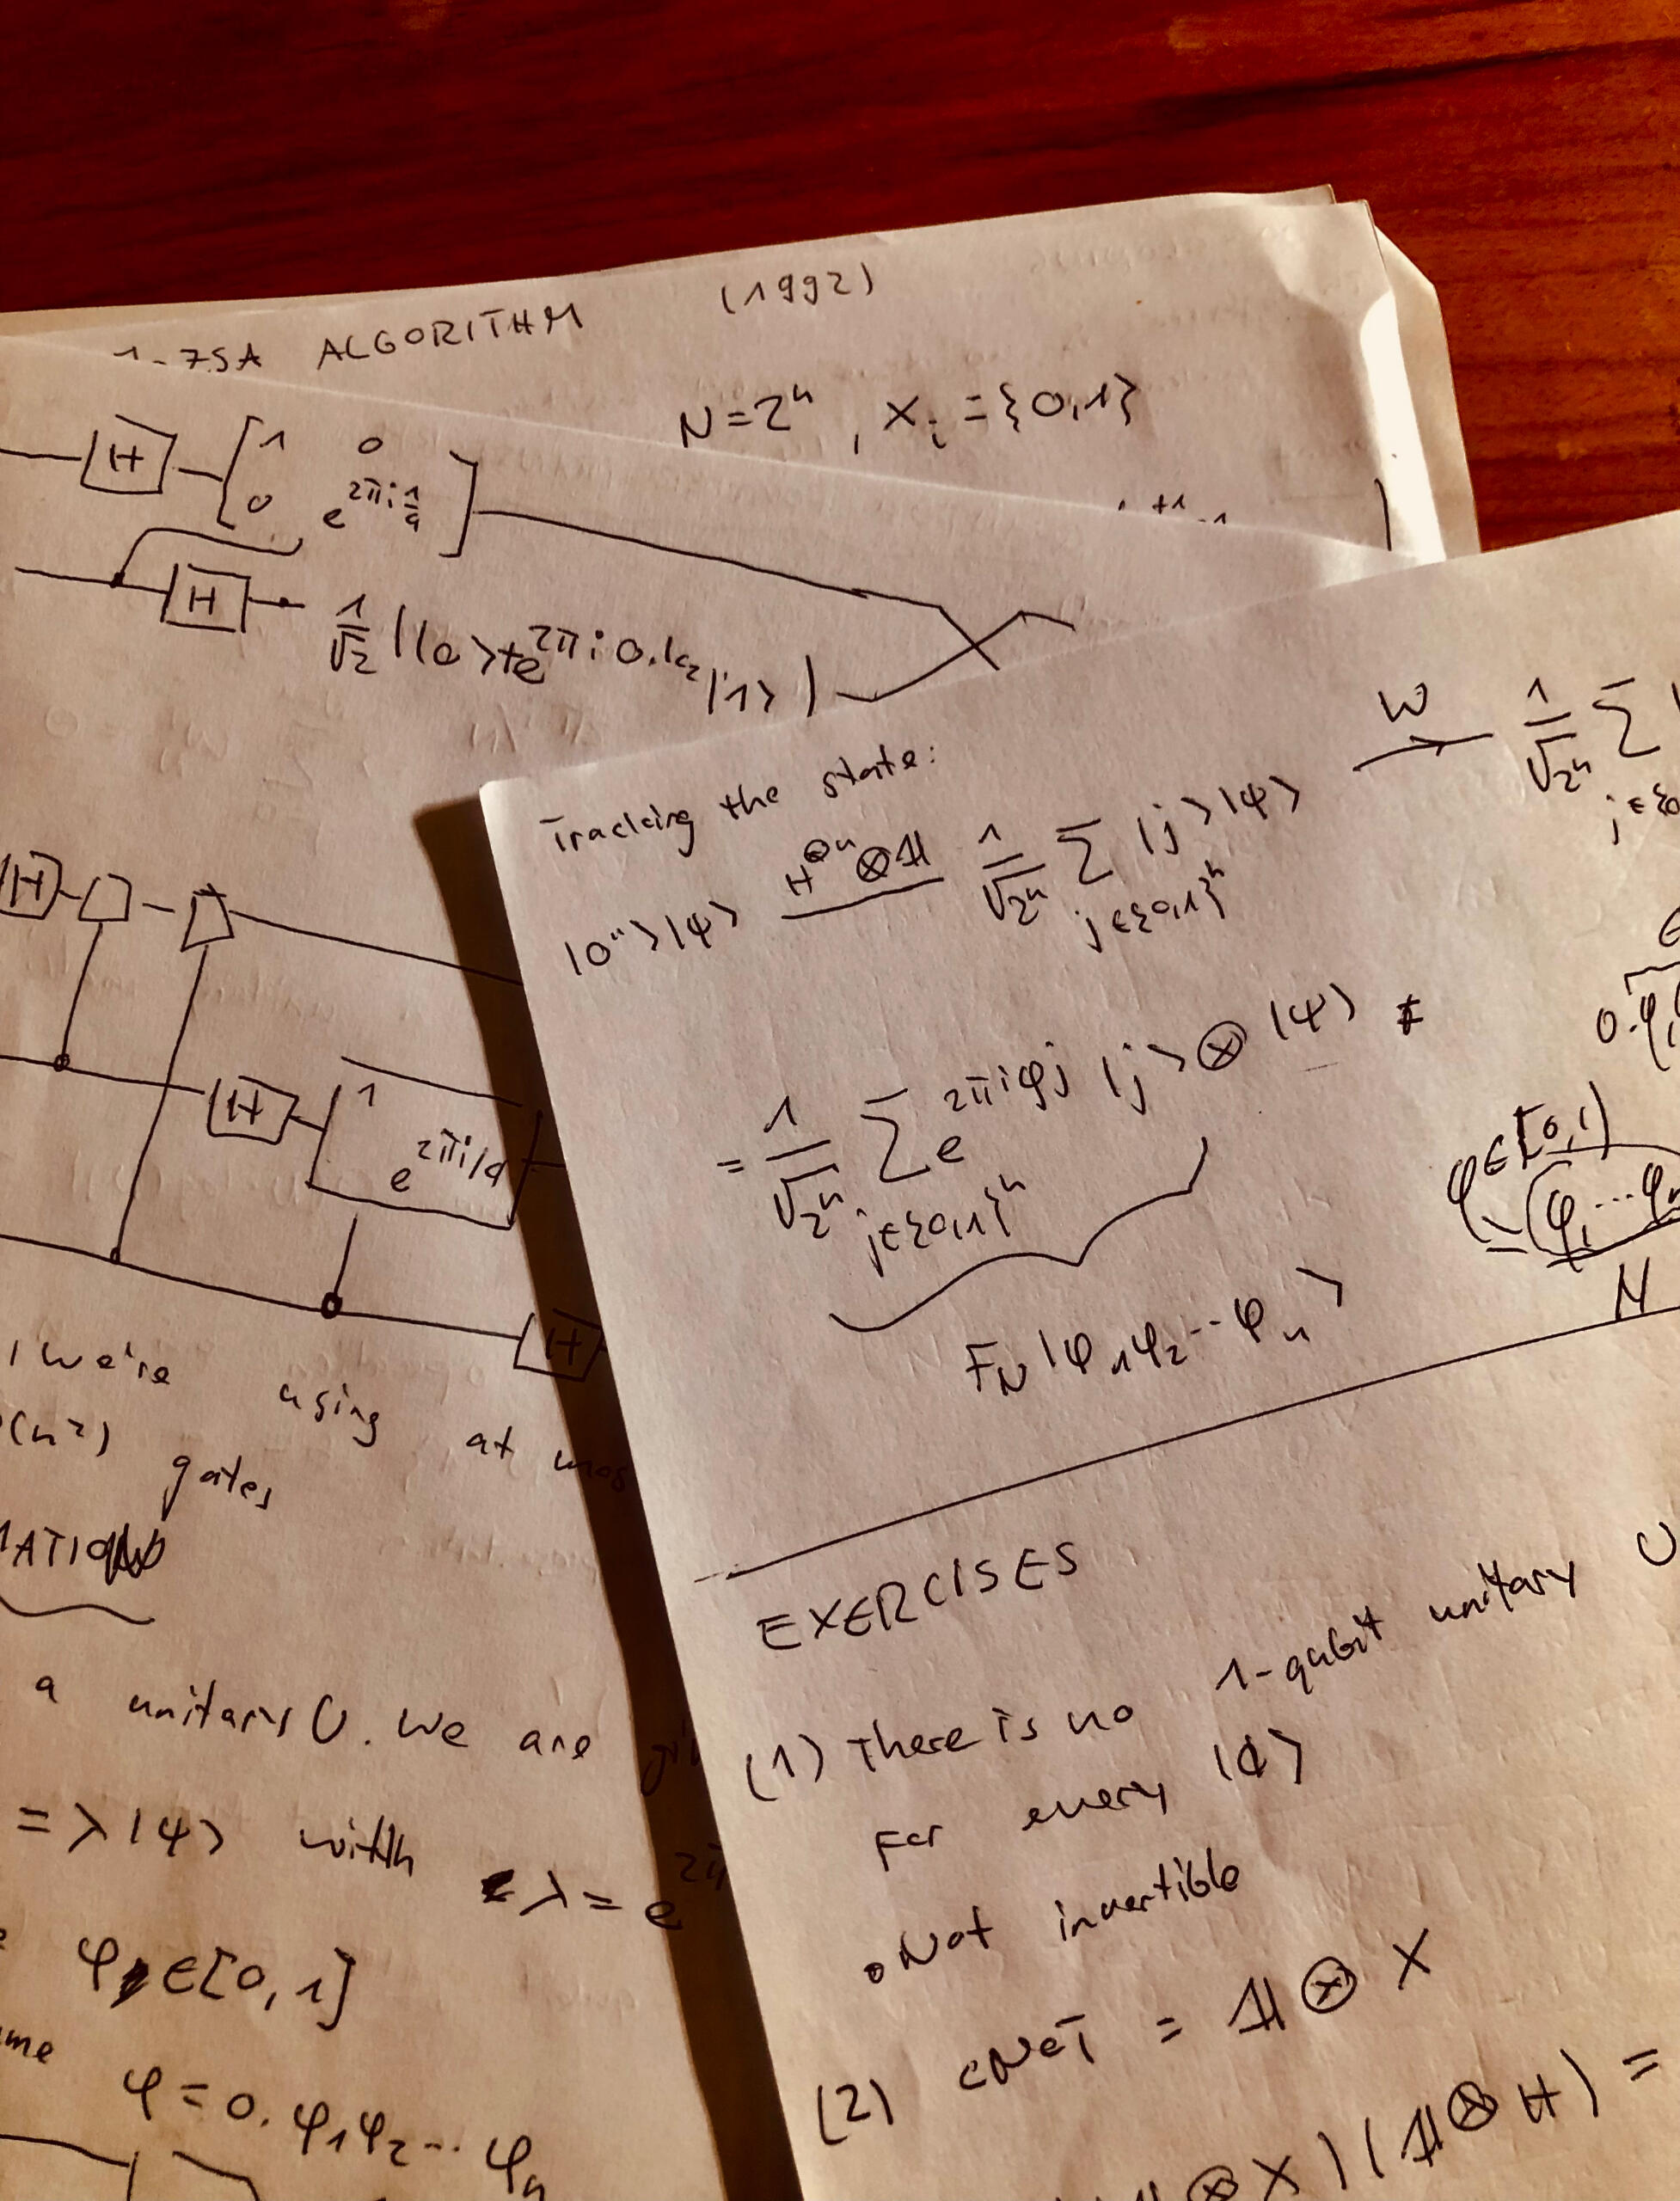 ALGORITHM (1992)
N=2ⁿ, xᵢ={0,1}
H [1 0
0 e^{2πi 1/4}]
H 1/√2 (|0>+e^{2πi0.k₂}|1>)
H
H [1
e^{2πi/4}]
H
we're using at mos
(n²) gates
a unitary U. We are
= λ|ψ> with λ= e^{2π
φ ∈[0,1]
me φ=0.φ₁φ₂...φₙ
Tracking the state:
|0ⁿ>|ψ> H^{⊗n}⊗𝟙 1/√2ⁿ Σ_{j∈{0,1}ⁿ} |j>|ψ> W 1/√2ⁿ Σ
= 1/√2ⁿ Σ_{j∈{0,1}ⁿ} e^{2πiφj} |j>⊗|ψ>
0.φ₁
φ∈[0,1)
= (φ₁...φₙ
N
F_N|φ₁φ₂...φₙ>
EXERCISES
(1) There is no 1-qubit unitary U
For every |ϕ>
• Not invertible
(2) CNOT = 𝟙⊗X
⊗X)(𝟙⊗H) =